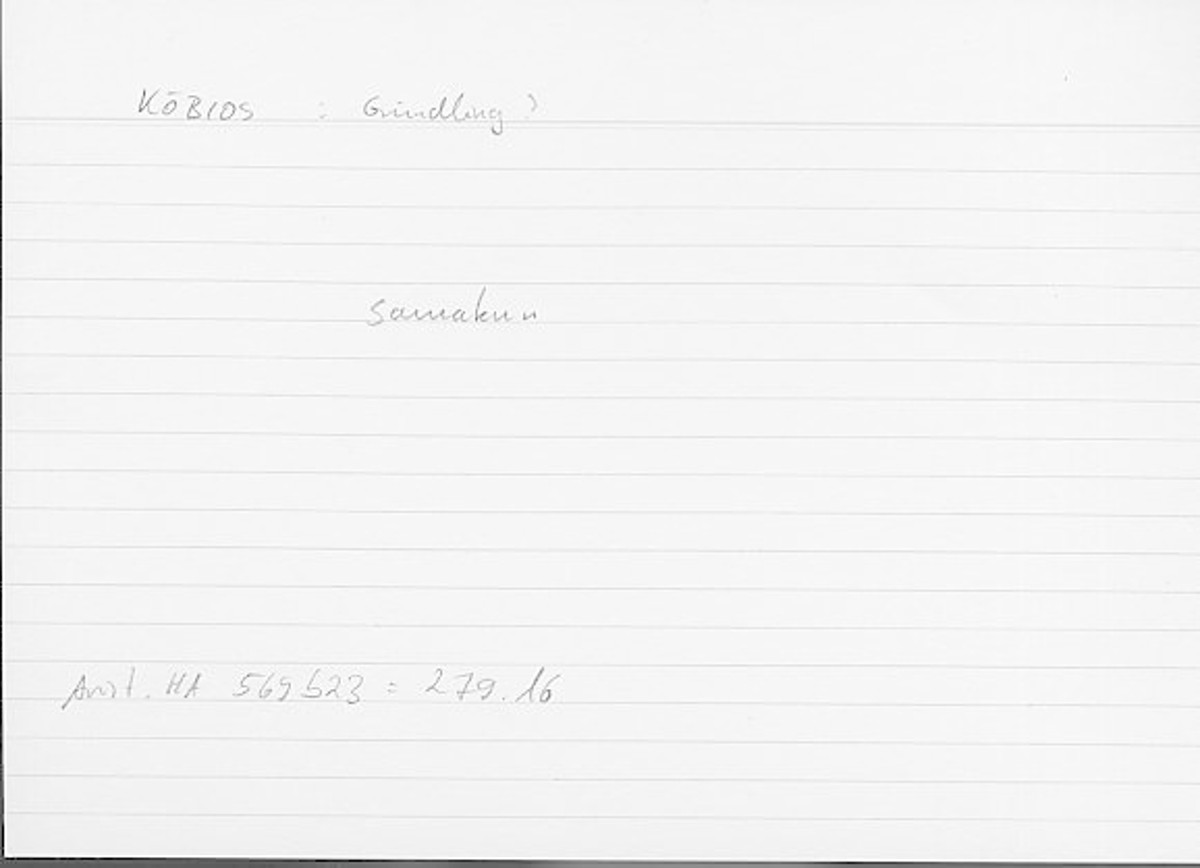 KŌBIOS : Gründling?
samakun
Arist. HA 569b23 = 279.16